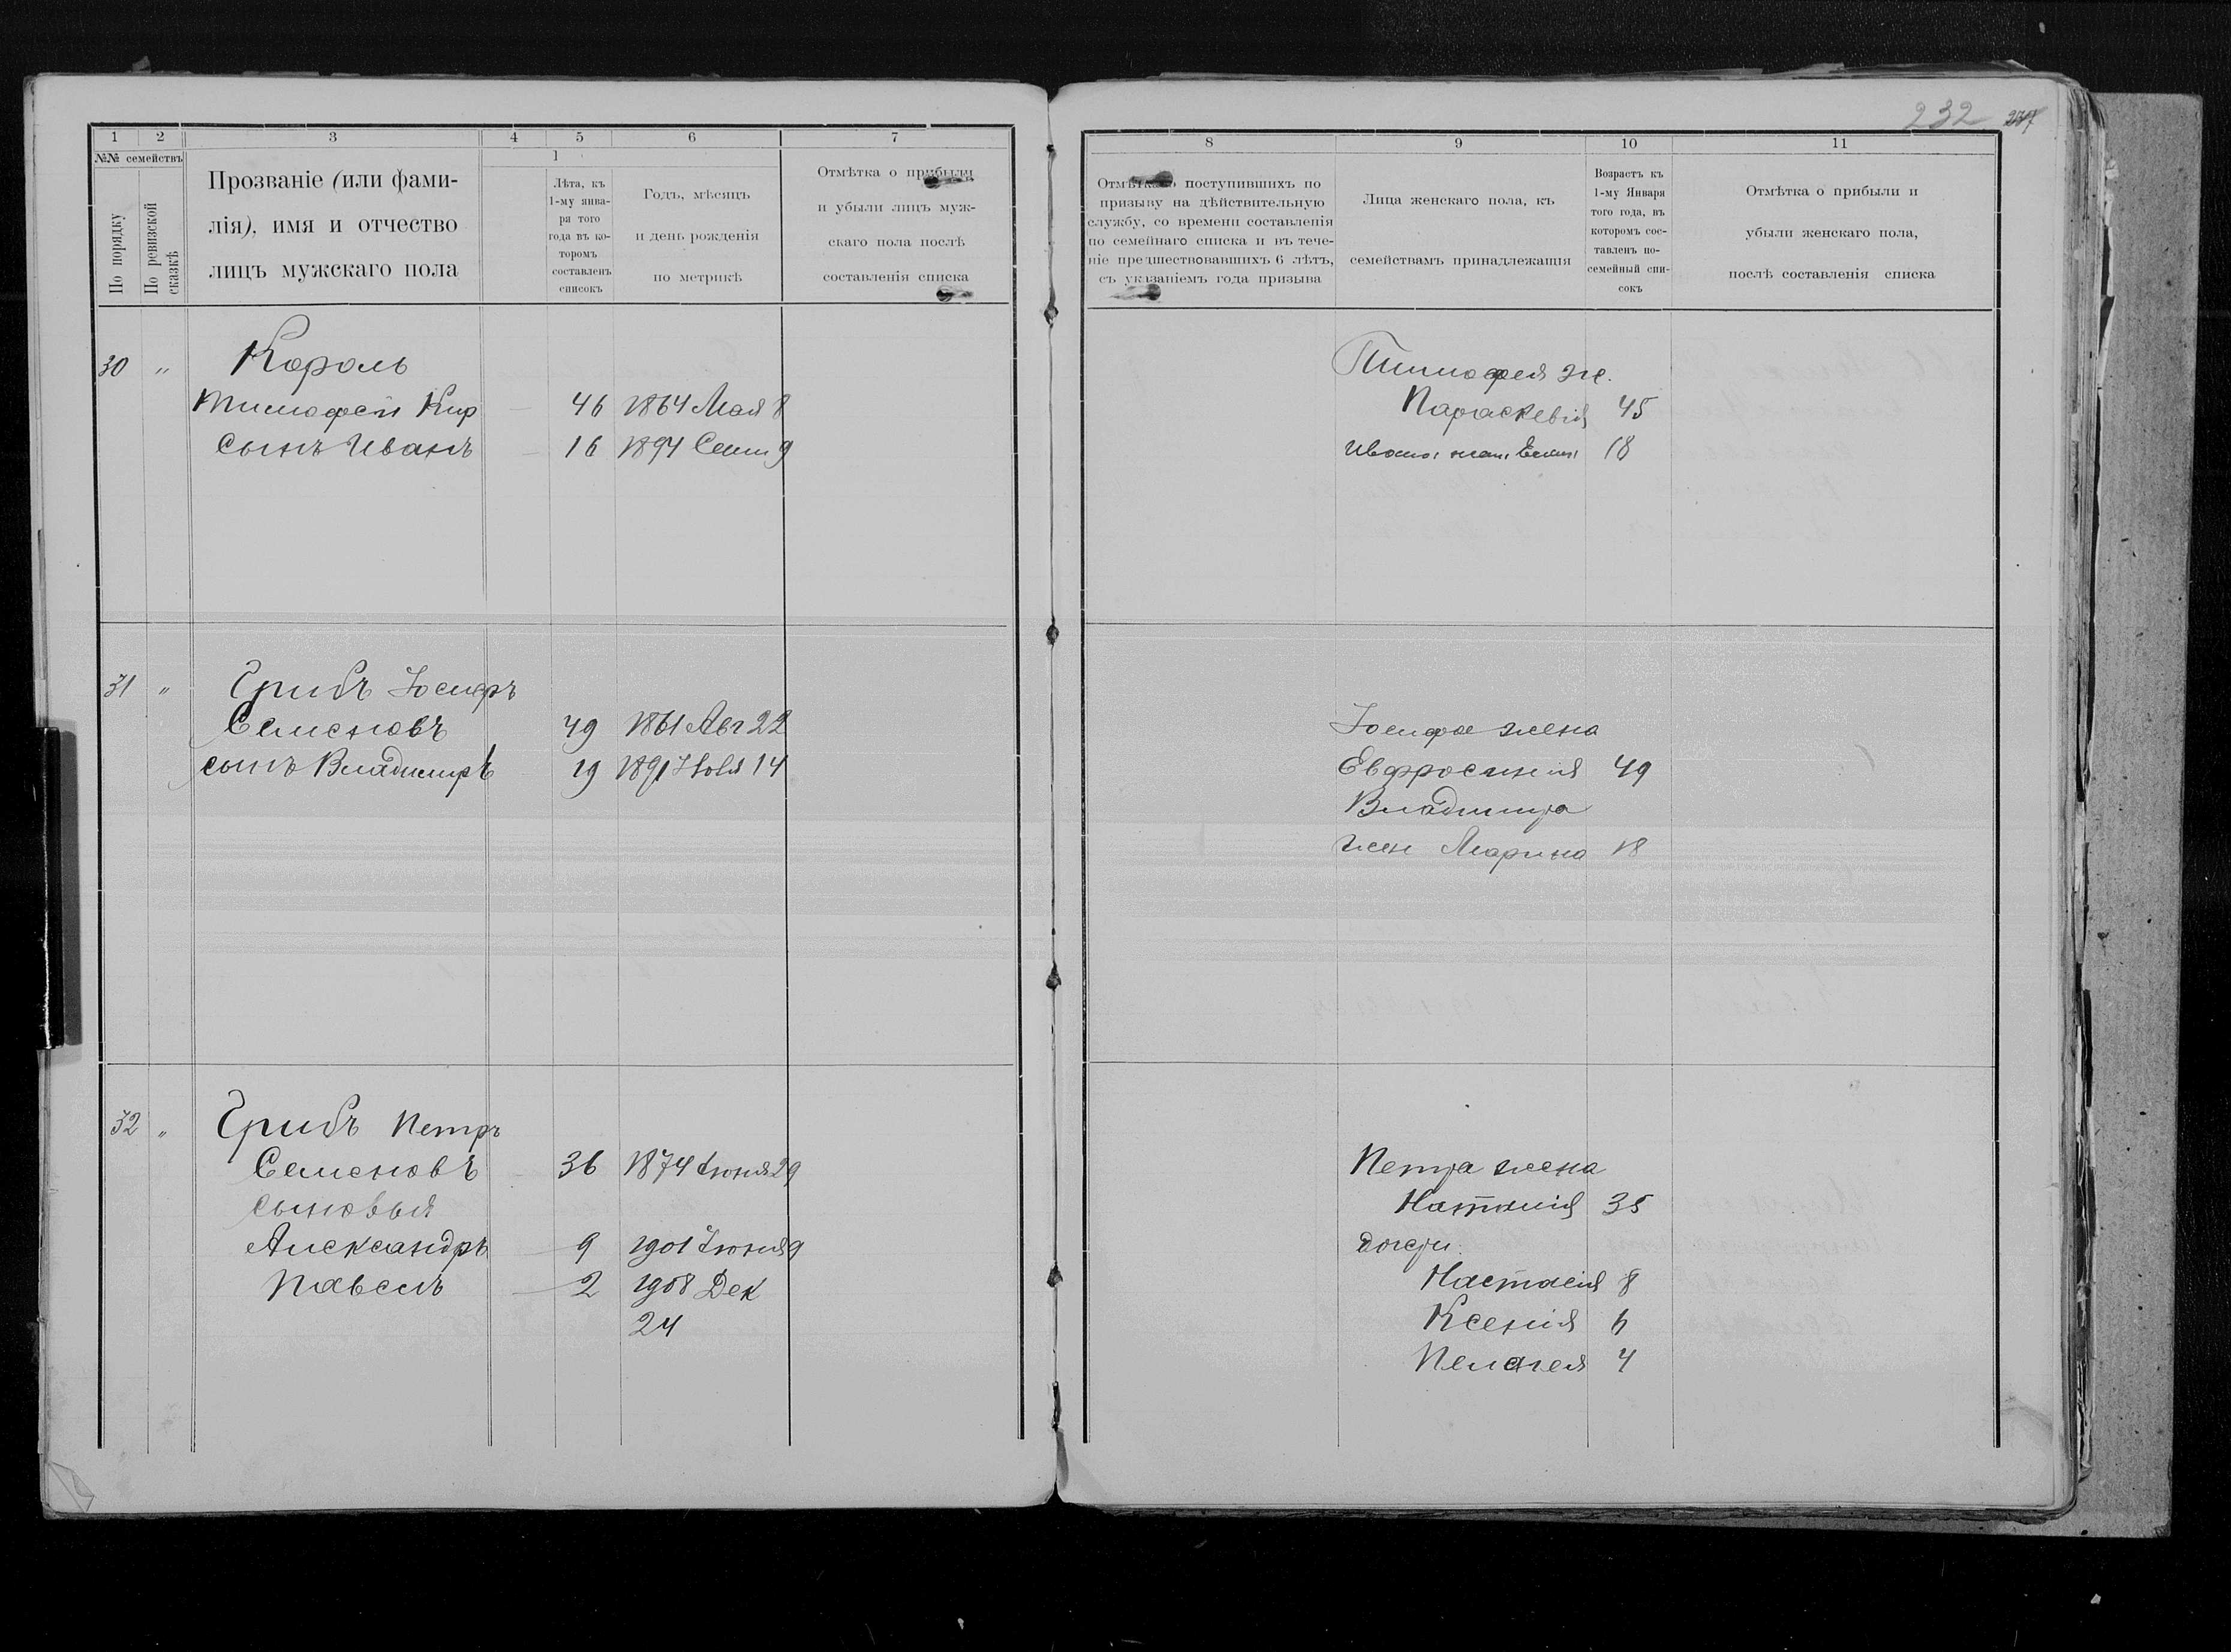 1 2 3 4 5 6 7
№№ семействъ
По порядку
По ревизской сказкѣ
Прозваніе (или фами-
лія), имя и отчество
лицъ мужскаго пола
1
Лѣта, къ
1-му янва-
ря того
года въ ко-
торомъ
составленъ
списокъ
Годъ, мѣсяцъ
и день рожденія
по метрикѣ
Отмѣтка о прибыли
и убыли лицъ муж-
скаго пола послѣ
составленія списка
30 " Король
Тимофей Кир 46 1864 Мая 8
сынъ Иванъ 16 1894 Сент 9
31 " Грибъ Іосифъ
Семеновъ 49 1861 Авг 22
сынъ Владимръ 19 1891 Іюля 14
32 " Грибъ Петръ
Семеновъ 36 1874 Іюня 29
сыновья
Александръ 9 1901 Іюня 9
Павелъ 2 1908 Дек
24
232
8 9 10 11
Отмѣтка о поступившихъ по
призыву на дѣйствительную
службу, со времени составленія
по семейнаго списка и въ тече-
ніе предшествовавшихъ 6 лѣтъ,
съ указаніемъ года призыва
Лица женскаго пола, къ
семействамъ принадлежащія
Возрастъ къ
1-му Января
того года, въ
которомъ сос-
тавленъ по-
семейный спи-
сокъ
Отмѣтка о прибыли и
убыли женскаго пола,
послѣ составленія списка
Тимофея ж.
Параскевія 45
Ивана 18
Іосифа жена
Евфросинія 49
Владимира
жен Марина 18
Петра жена
Наталія 35
дочери:
Настасія 8
Ксенія 6
Пелагея 4